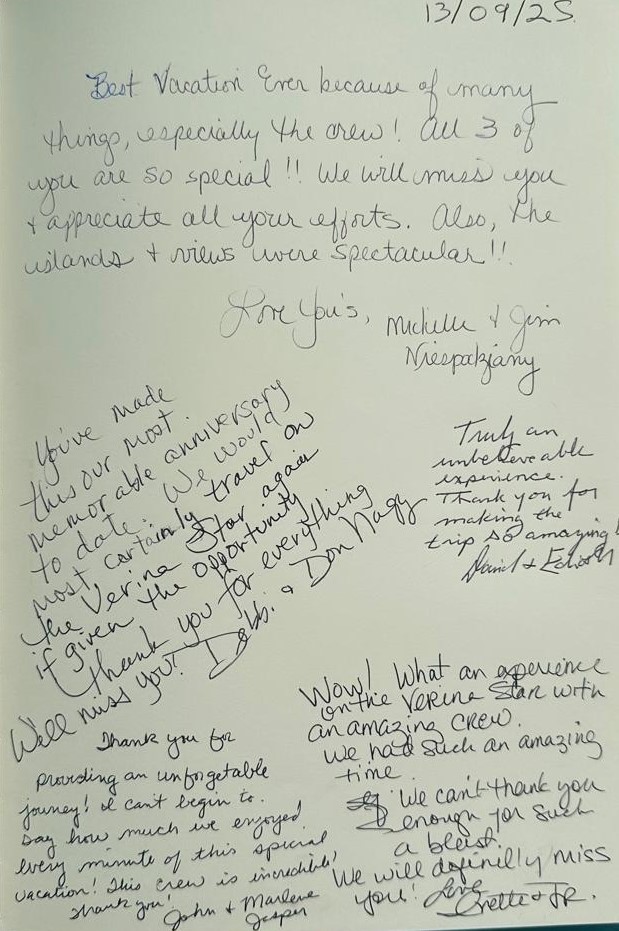 13/09/25.
Best Vacation Ever because of many
things, especially the crew! All 3 of
you are so special!! We will miss you
+ appreciate all your efforts. Also, the
islands + views were spectacular!!
Love You's, Michelle + Jim
Niespodziany
You've made
this our most
memorable anniversary
to date. We would
most certainly travel on
the Verina Star again
if given the opportunity
Thank you for everything
We'll miss you! Debbi + Don Nagy
Truly an
unbelieveable
experience.
Thank you for
making the
trip so amazing!
David +
Thank you for
providing an unforgetable
journey! I can't begin to
say how much we enjoyed
every minute of this special
vacation! This crew is incredible!
Thank you!
John + Marlene
Jasper
Wow! What an experience
on the Verina Star with
an amazing crew.
We had such an amazing
time.
We can't thank you
enough for such
a blast.
We will definitly miss
you! Love
+ JR.